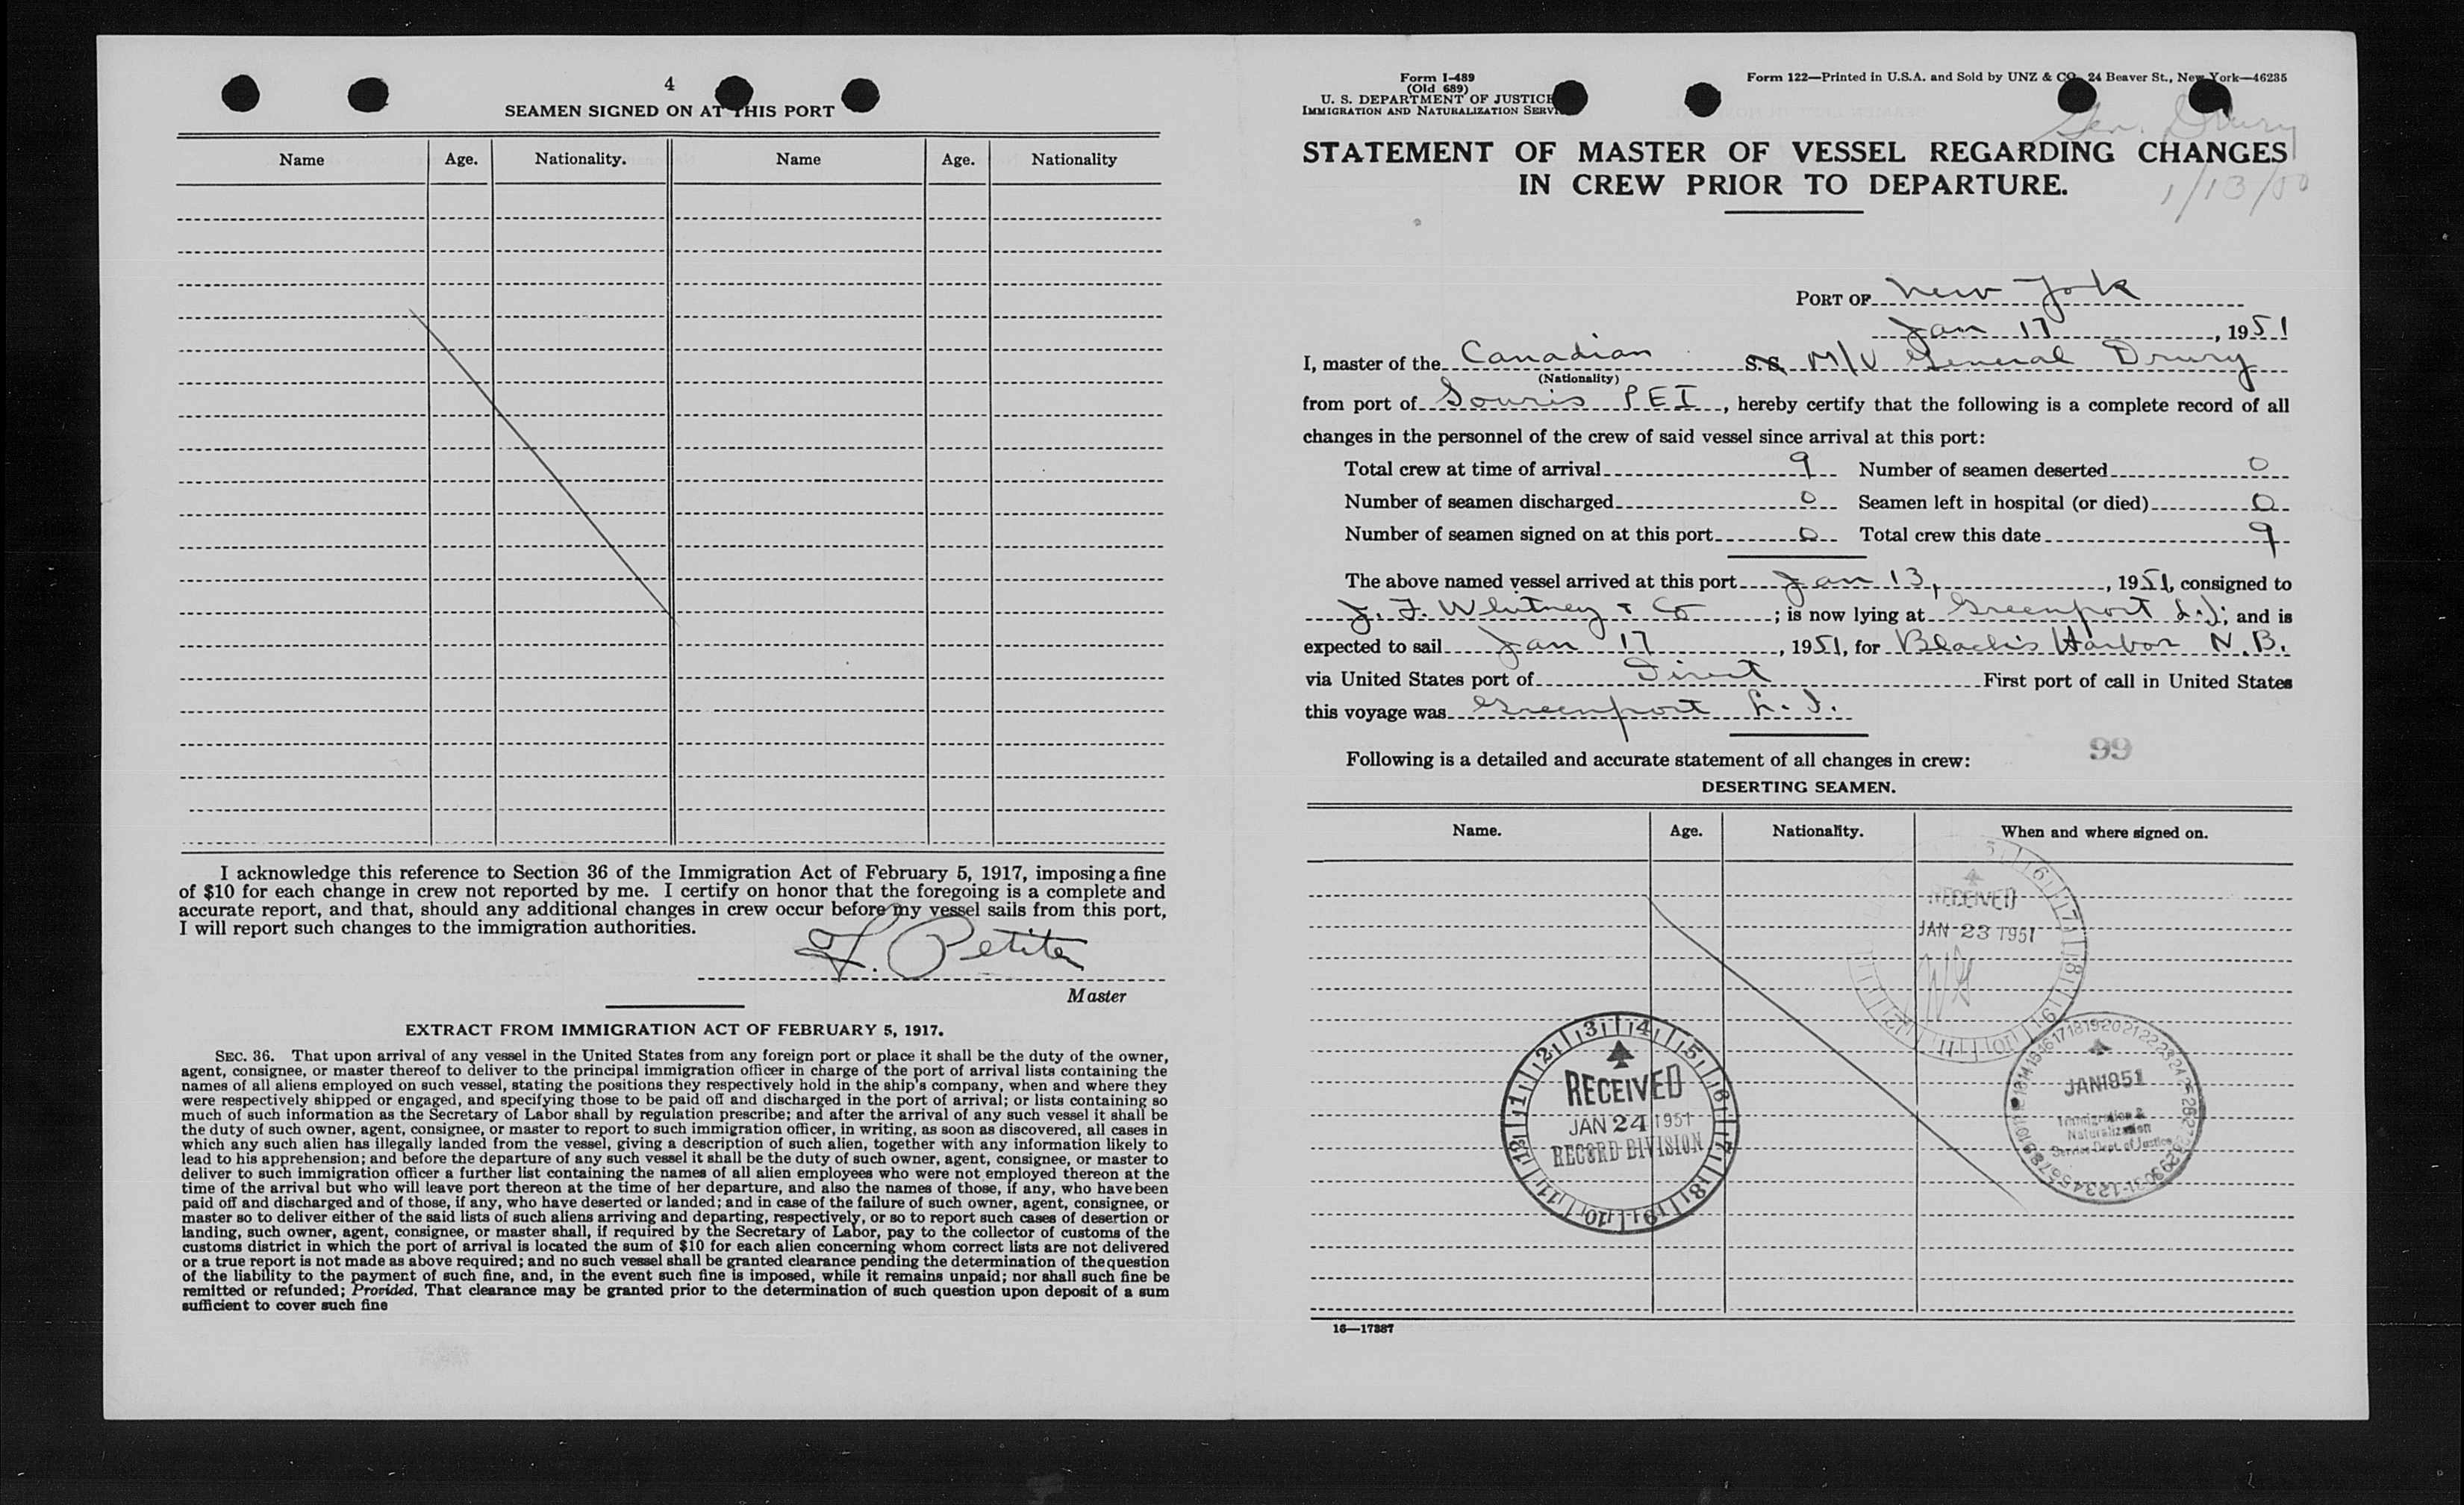 4
SEAMEN SIGNED ON AT THIS PORT
Name Age. Nationality. Name Age. Nationality
I acknowledge this reference to Section 36 of the Immigration Act of February 5, 1917, imposing a fine
of $10 for each change in crew not reported by me. I certify on honor that the foregoing is a complete and
accurate report, and that, should any additional changes in crew occur before my vessel sails from this port,
I will report such changes to the immigration authorities.
F. Petite
Master
EXTRACT FROM IMMIGRATION ACT OF FEBRUARY 5, 1917.
SEC. 36. That upon arrival of any vessel in the United States from any foreign port or place it shall be the duty of the owner,
agent, consignee, or master thereof to deliver to the principal immigration officer in charge of the port of arrival lists containing the
names of all aliens employed on such vessel, stating the positions they respectively hold in the ship's company, when and where they
were respectively shipped or engaged, and specifying those to be paid off and discharged in the port of arrival; or lists containing so
much of such information as the Secretary of Labor shall by regulation prescribe; and after the arrival of any such vessel it shall be
the duty of such owner, agent, consignee, or master to report to such immigration officer, in writing, as soon as discovered, all cases in
which any such alien has illegally landed from the vessel, giving a description of such alien, together with any information likely to
lead to his apprehension; and before the departure of any such vessel it shall be the duty of such owner, agent, consignee, or master to
deliver to such immigration officer a further list containing the names of all alien employees who were not employed thereon at the
time of the arrival but who will leave port thereon at the time of her departure, and also the names of those, if any, who have been
paid off and discharged and of those, if any, who have deserted or landed; and in case of the failure of such owner, agent, consignee, or
master so to deliver either of the said lists of such aliens arriving and departing, respectively, or so to report such cases of desertion or
landing, such owner, agent, consignee, or master shall, if required by the Secretary of Labor, pay to the collector of customs of the
customs district in which the port of arrival is located the sum of $10 for each alien concerning whom correct lists are not delivered
or a true report is not made as above required; and no such vessel shall be granted clearance pending the determination of the question
of the liability to the payment of such fine, and, in the event such fine is imposed, while it remains unpaid; nor shall such fine be
remitted or refunded; Provided, That clearance may be granted prior to the determination of such question upon deposit of a sum
sufficient to cover such fine
Form I-489
(Old 689)
U. S. DEPARTMENT OF JUSTICE
IMMIGRATION AND NATURALIZATION SERVICE
Form 122—Printed in U.S.A. and Sold by UNZ & CO. 24 Beaver St., New York—46235
Gen. Drury
1/13/50
STATEMENT OF MASTER OF VESSEL REGARDING CHANGES
IN CREW PRIOR TO DEPARTURE.
PORT OF New York
Jan 17, 1951
I, master of the Canadian S.S. M/V General Drury
(Nationality)
from port of Souris PEI, hereby certify that the following is a complete record of all
changes in the personnel of the crew of said vessel since arrival at this port:
Total crew at time of arrival 9 Number of seamen deserted 0
Number of seamen discharged 0 Seamen left in hospital (or died) 0
Number of seamen signed on at this port 0 Total crew this date 9
The above named vessel arrived at this port Jan 13, , 1951, consigned to
J. F. Whitney & Co ; is now lying at Greenport L.I; and is
expected to sail Jan 17, 1951, for Black's Harbor N.B.
via United States port of Direct First port of call in United States
this voyage was Greenport L. I.
99
Following is a detailed and accurate statement of all changes in crew:
DESERTING SEAMEN.
Name. Age. Nationality. When and where signed on.
RECEIVED
JAN 23 1951
RECEIVED
JAN 24 1951
RECORD DIVISION
JAN 1951
Immigration &
Naturalization
Service Dept. of Justice
16—17387